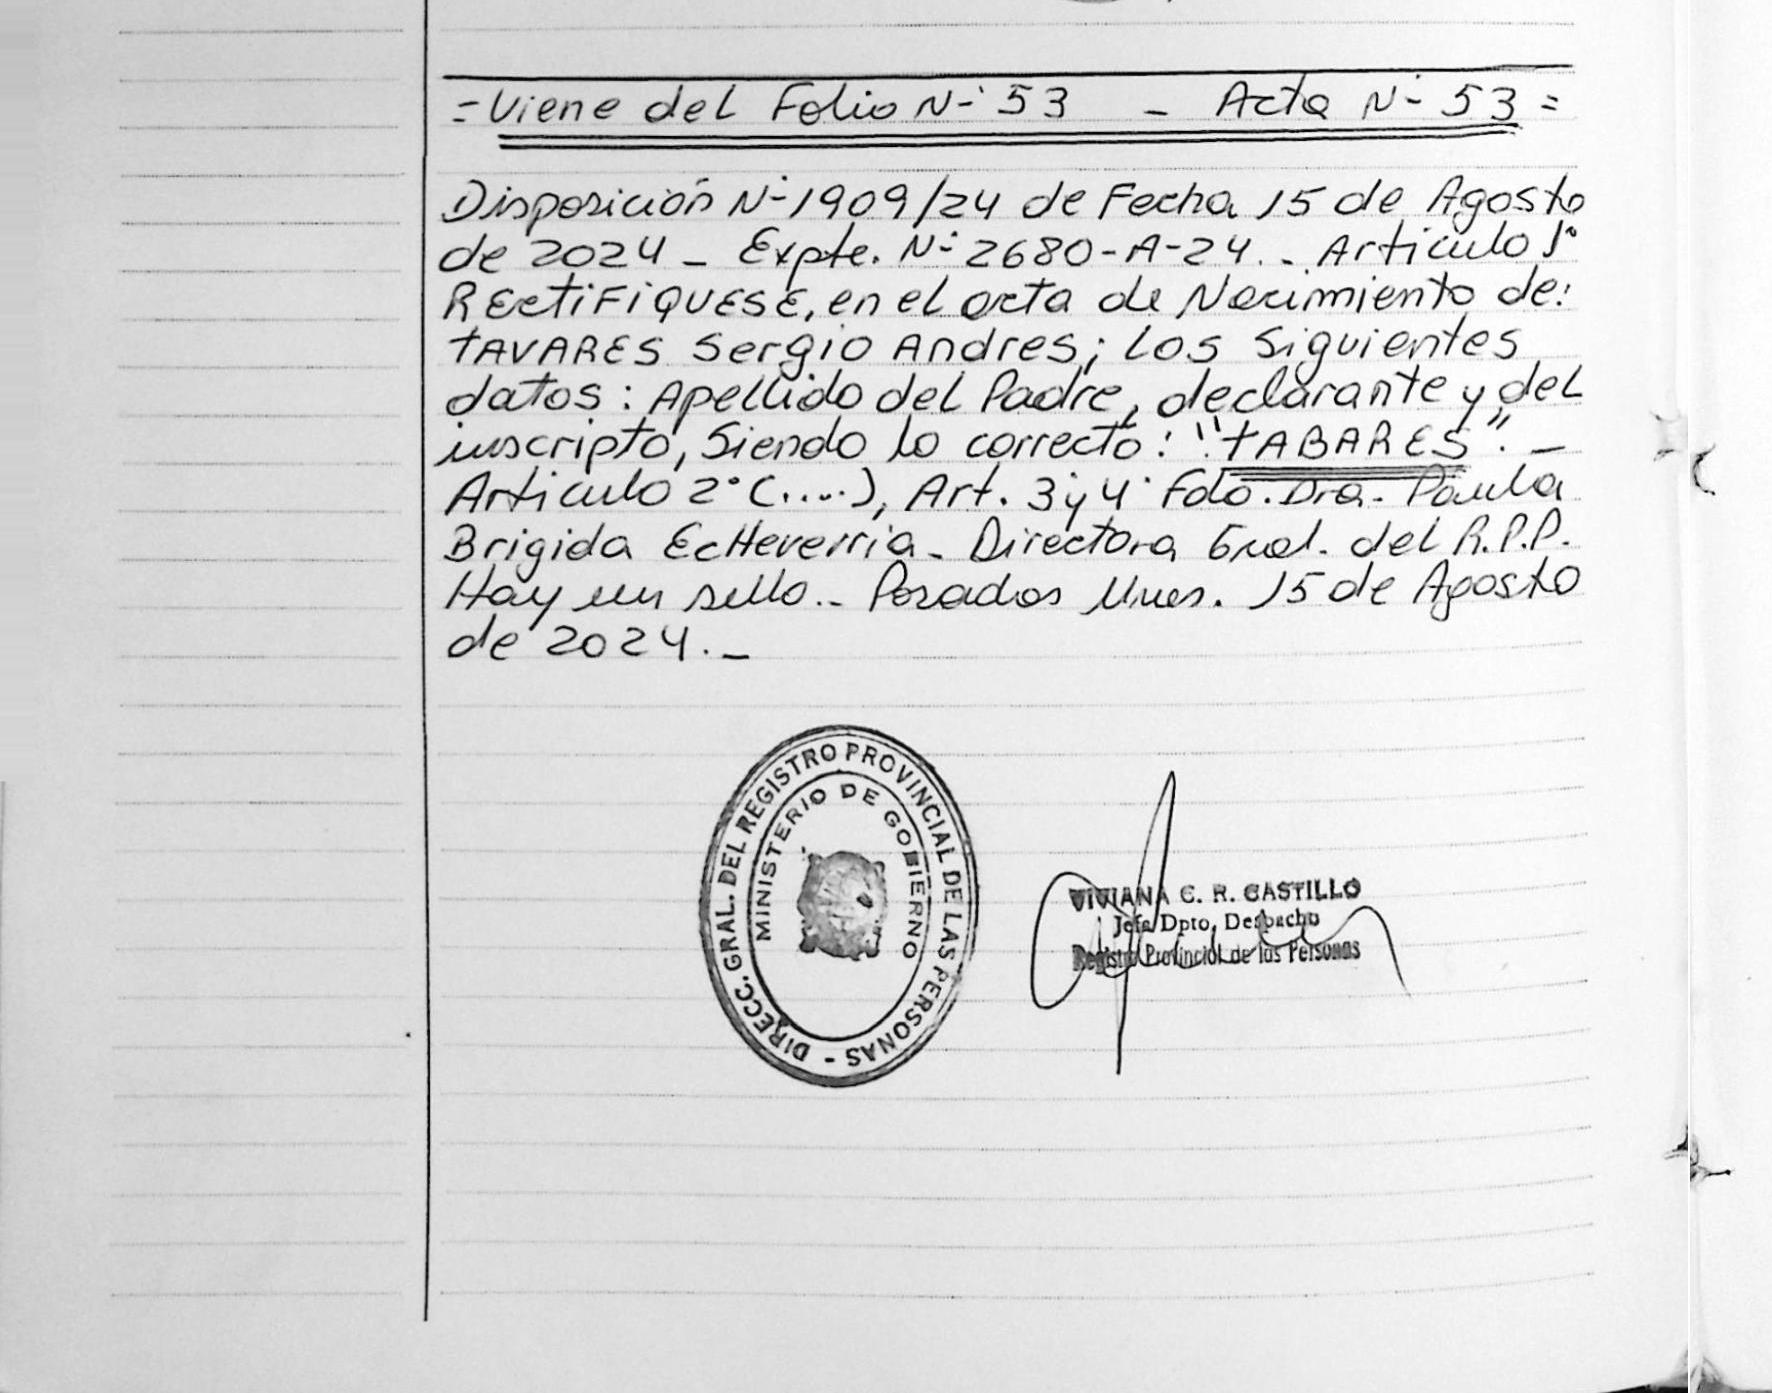 =Viene del Folio N-° 53 - Acta N-° 53=
Disposición N-° 1909/24 de Fecha 15 de Agosto
de 2024 - Expte. N-° 2680-A-24.- Articulo 1°
RECTIFIQUESE, en el acta de Nacimiento de:
TAVARES Sergio Andres; Los Siguientes
datos: Apellido del Padre, declarante y del
inscripto, Siendo lo correcto: "TABARES".-
Articulo 2° (.....), Art. 3 y 4° Fdo. Dra. Paula
Brigida Echeverria - Directora Gral. del R.P.P.
Hay un sello.- Posadas Mnes. 15 de Agosto
de 2024.-
DIRECC. GRAL. DEL REGISTRO PROVINCIAL DE LAS PERSONAS -
MINISTERIO DE GOBIERNO
VIVIANA C. R. CASTILLO
Jefa Dpto. Despacho
Registro Provincial de las Personas